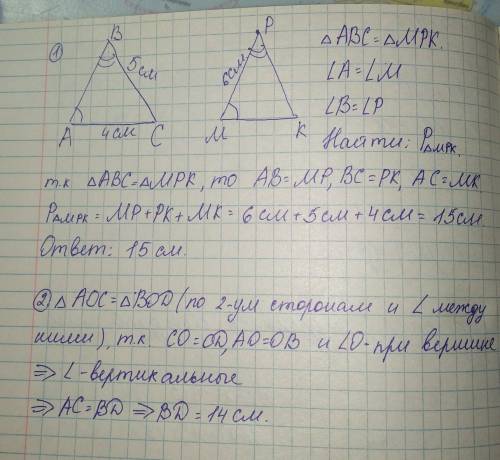 1
B
5см
A
4см
C
P
6см
M
K
△ABC=△MPK.
∠A=∠M
∠B=∠P
Найти: P△MPK.
т.к △ABC=△MPK, то AB=MP, BC=PK, AC=MK
P△MPK = MP+PK+MK = 6 см + 5 см + 4 см = 15 см
Ответ: 15 см.
2 △AOC=△BOD (по 2-ум сторонам и ∠ между
ними), т.к CO=OD, AO=OB и ∠O-при вершине
⇒ ∠-вертикальные
⇒ AC=BD ⇒ BD = 14 см.